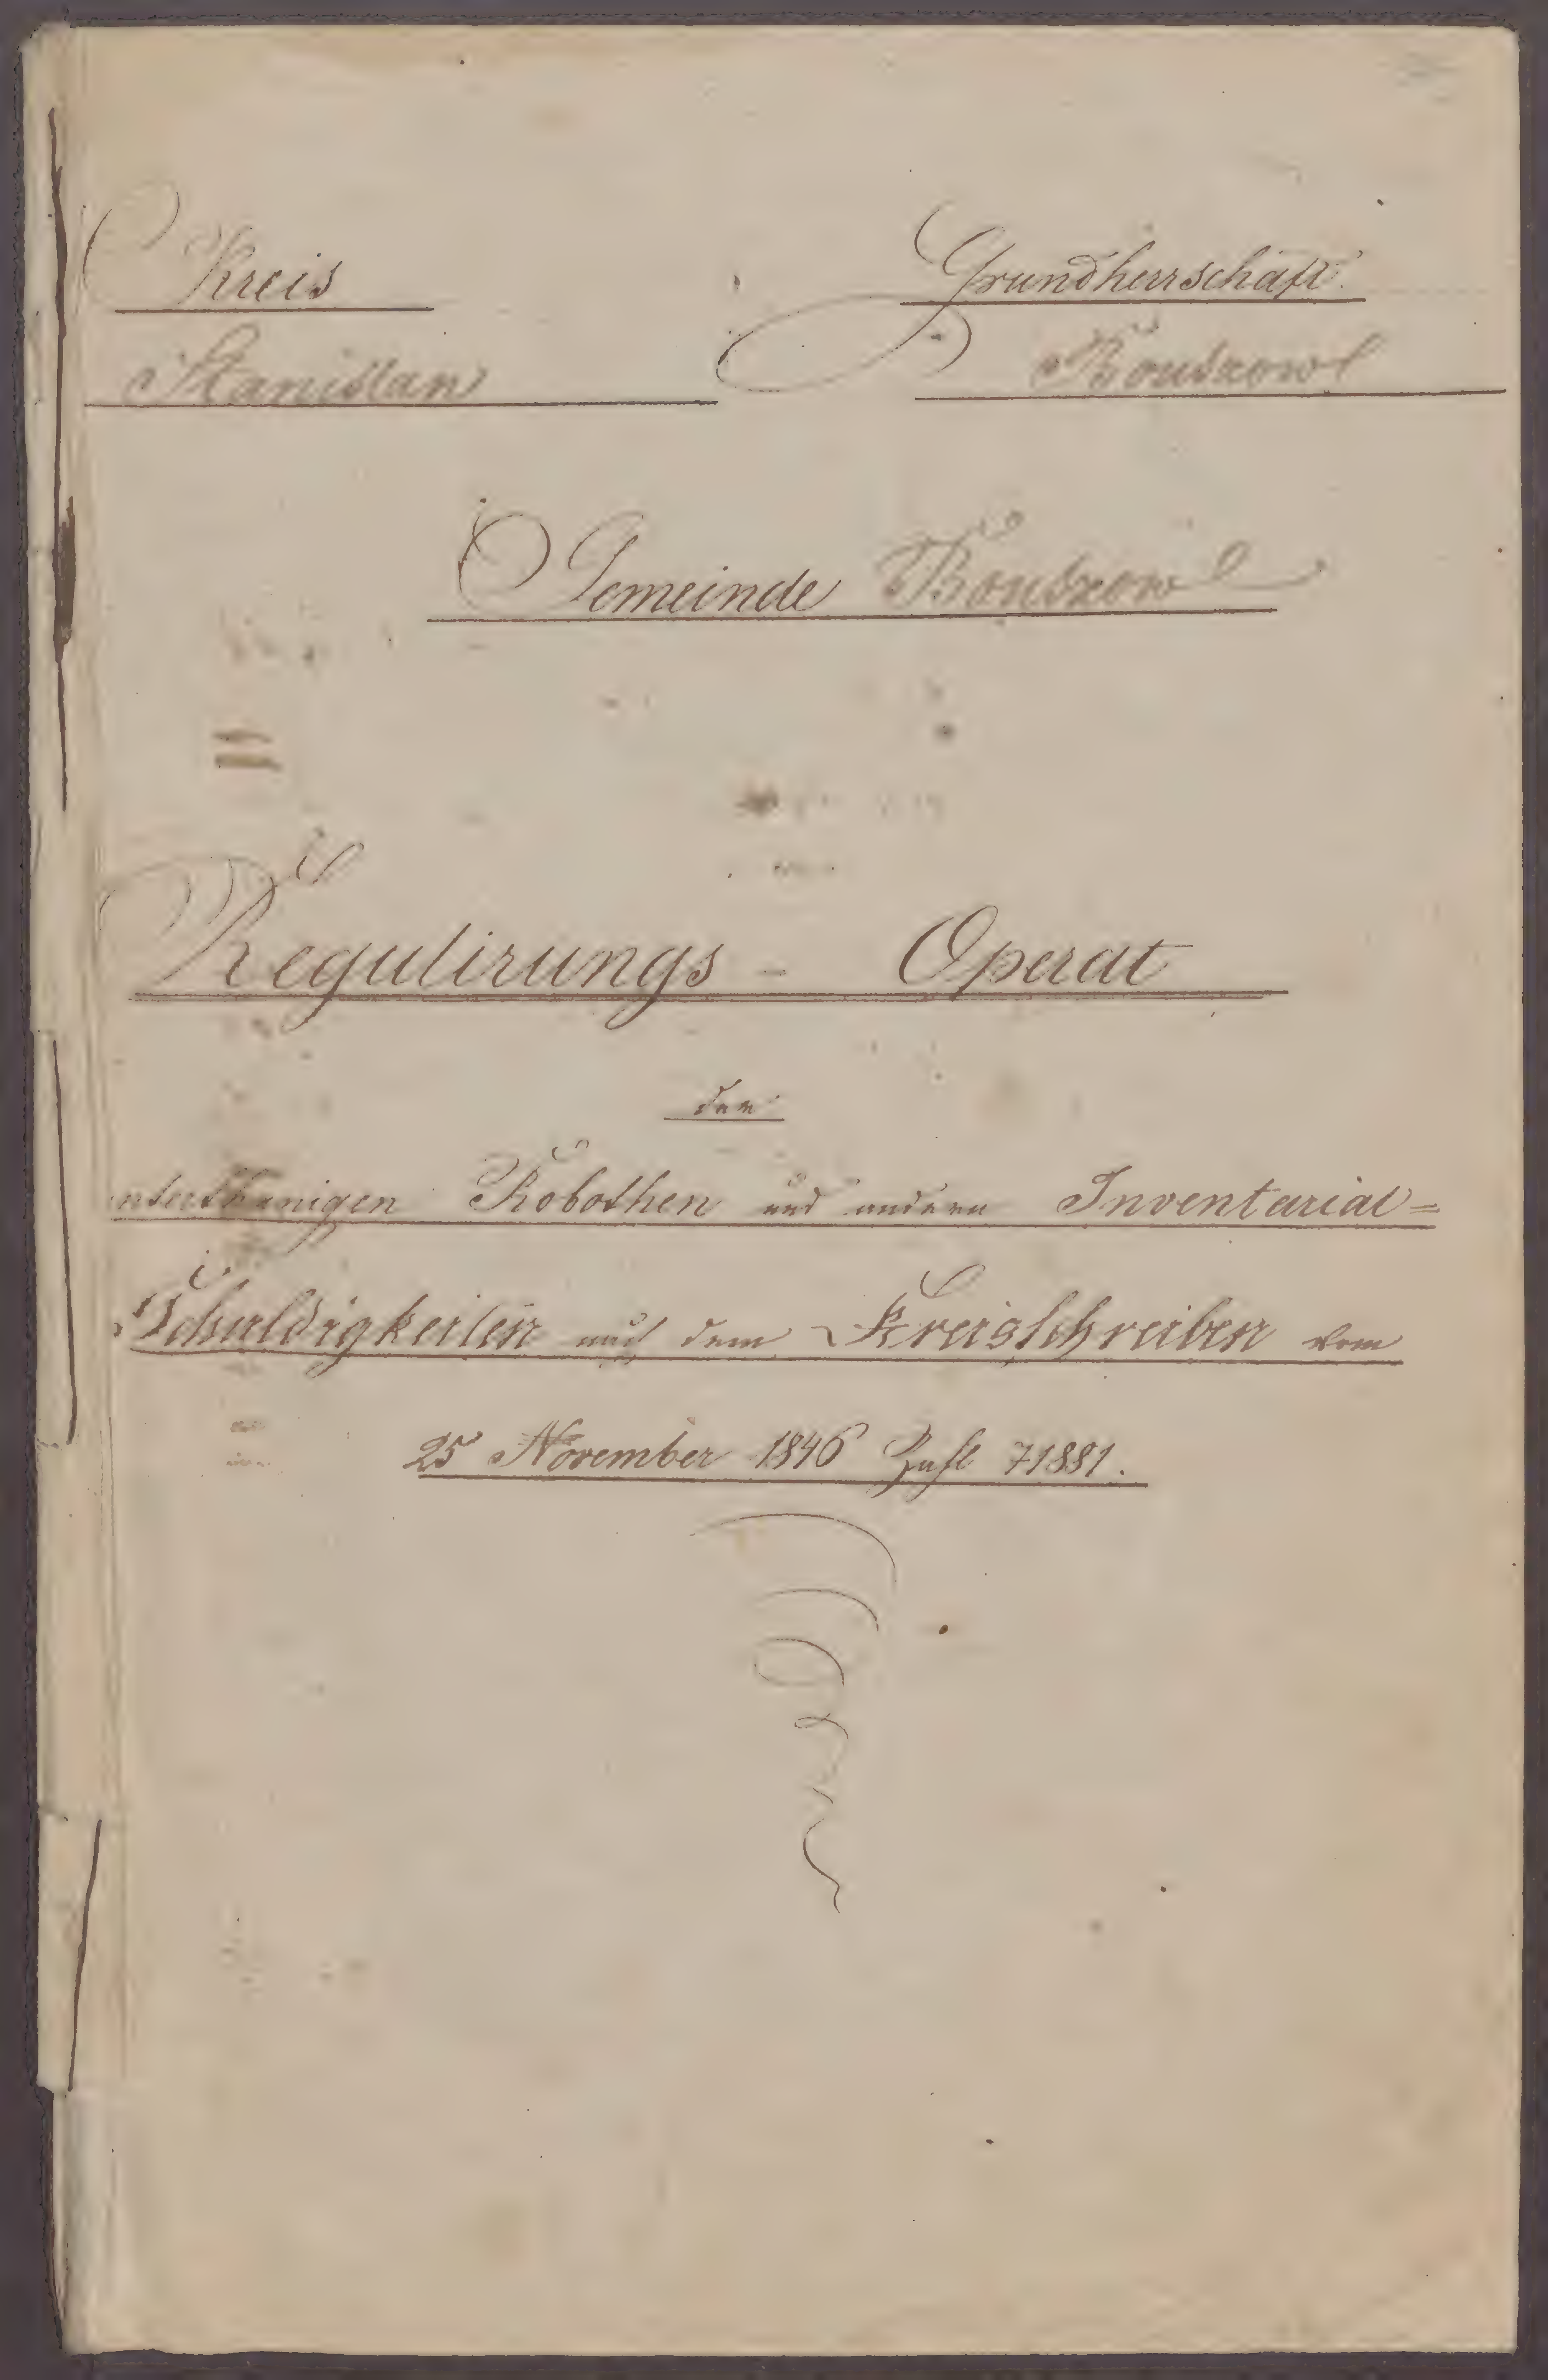 Kreis Grundherrschaft.
Stanislau Bouszow
Gemeinde Bouszow
Regulirungs - Operat
der
unterthanigen Robothen und andern Inventarial=
Schuldigkeiten nach dem Kreisschreiben vom
25 November 1846 Zahl 71881.